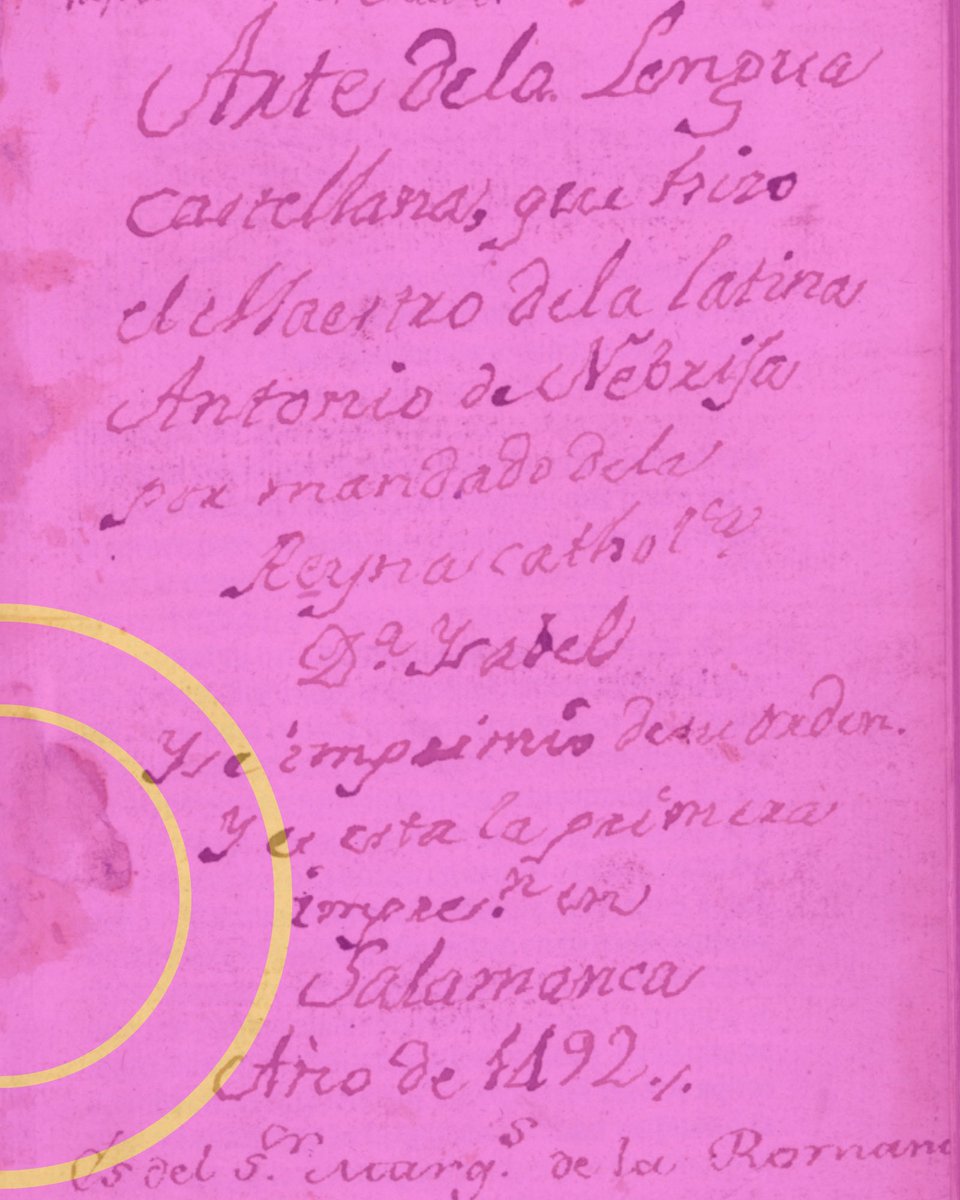 Arte dela Lengua
castellana, que hizo
el Maestro dela latina
Antonio de Nebrija
por mandado dela
Reyna cathol.ca
D.ª Ysabel
Y se imprimio de su orden.
Y es esta la primera
impres.n en
Salamanca
Año de 1492./.
Es del S.or Marq.s de la Roman